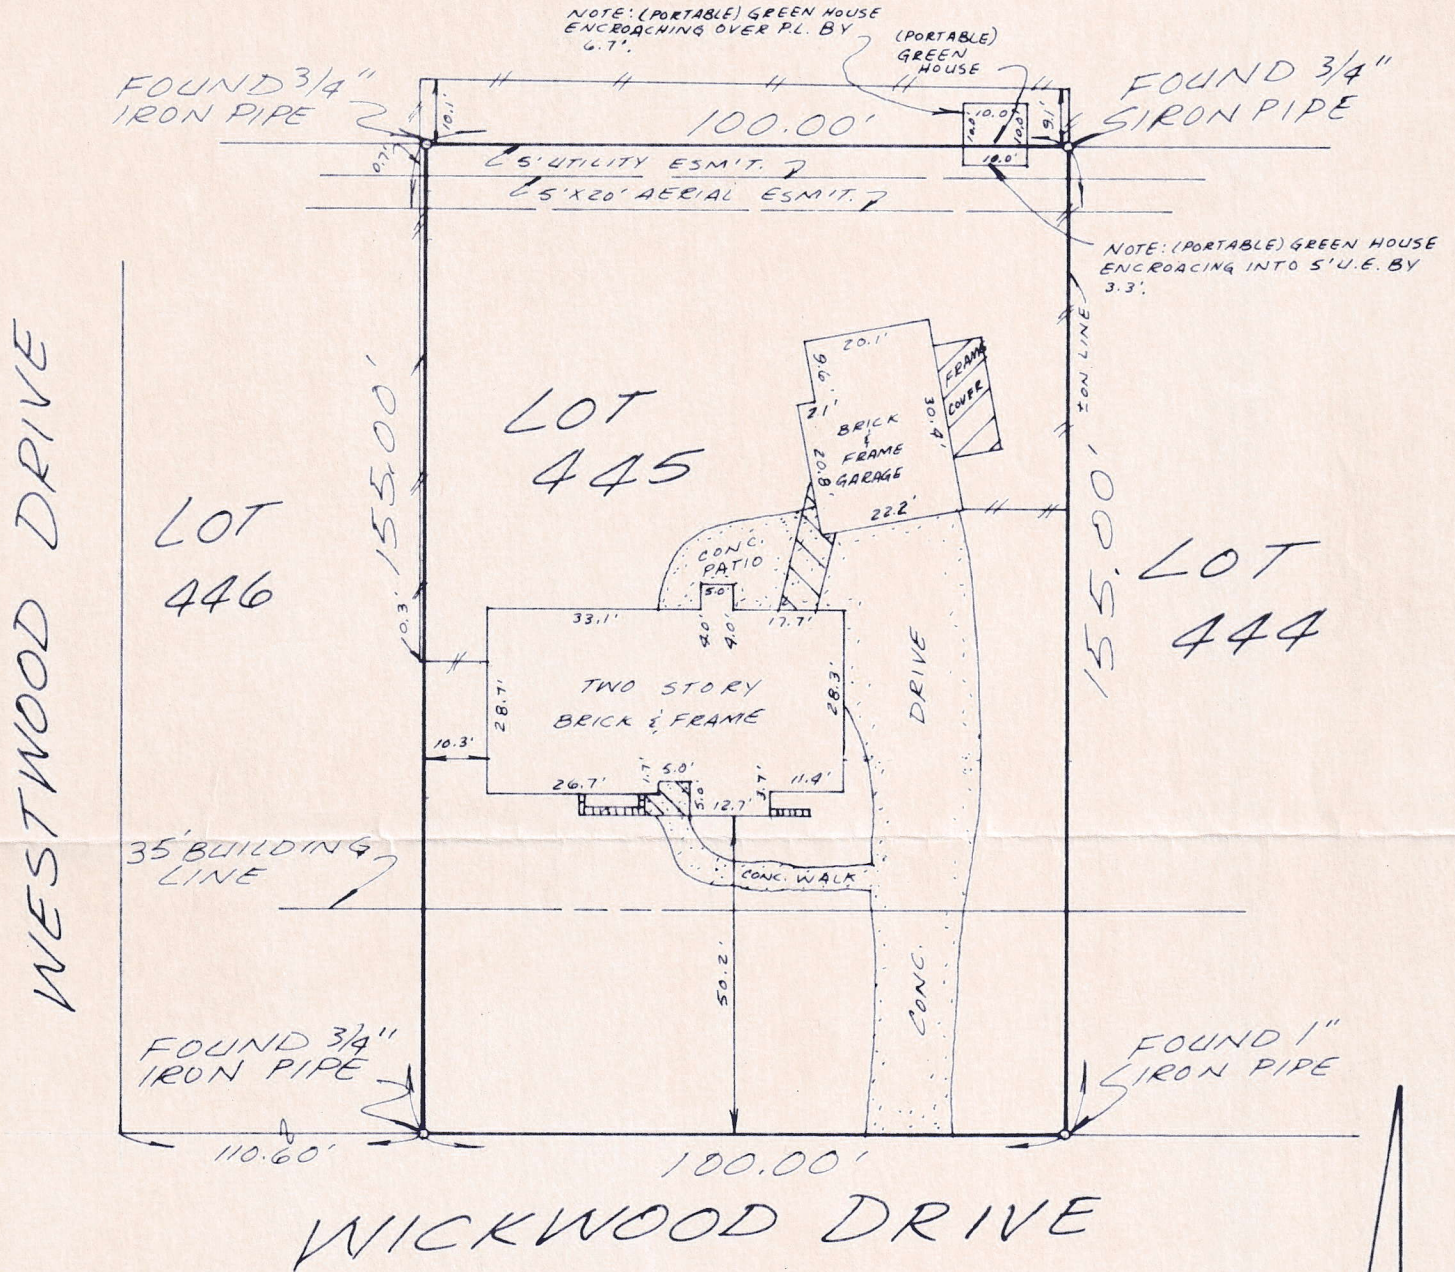 NOTE: (PORTABLE) GREEN HOUSE
ENCROACHING OVER P.L. BY
6.7'.
(PORTABLE)
GREEN
HOUSE
FOUND 3/4"
IRON PIPE
FOUND 3/4"
IRON PIPE
10.1'
100.00'
10.0'
10.0'
10.0'
10.0'
9.1'
0.7'
5' UTILITY ESM'T.
5' X 20' AERIAL ESM'T.
NOTE: (PORTABLE) GREEN HOUSE
ENCROACING INTO 5' U.E. BY
3.3'.
ON LINE
WESTWOOD DRIVE
155.00'
LOT
445
20.1'
9.6'
2.1'
20.8'
30.4'
22.2'
BRICK
&
FRAME
GARAGE
FRAME
COVER
LOT
446
155.00'
LOT
444
CONC.
PATIO
5.0'
4.0'
4.0'
33.1'
17.7'
10.3'
28.7'
TWO STORY
BRICK & FRAME
28.3'
DRIVE
10.3'
26.7'
1.7'
5.0'
5.0'
12.7'
3.7'
11.4'
35' BUILDING
LINE
CONC. WALK
50.2'
CONC.
FOUND 3/4"
IRON PIPE
FOUND 1"
IRON PIPE
110.60'
100.00'
WICKWOOD DRIVE